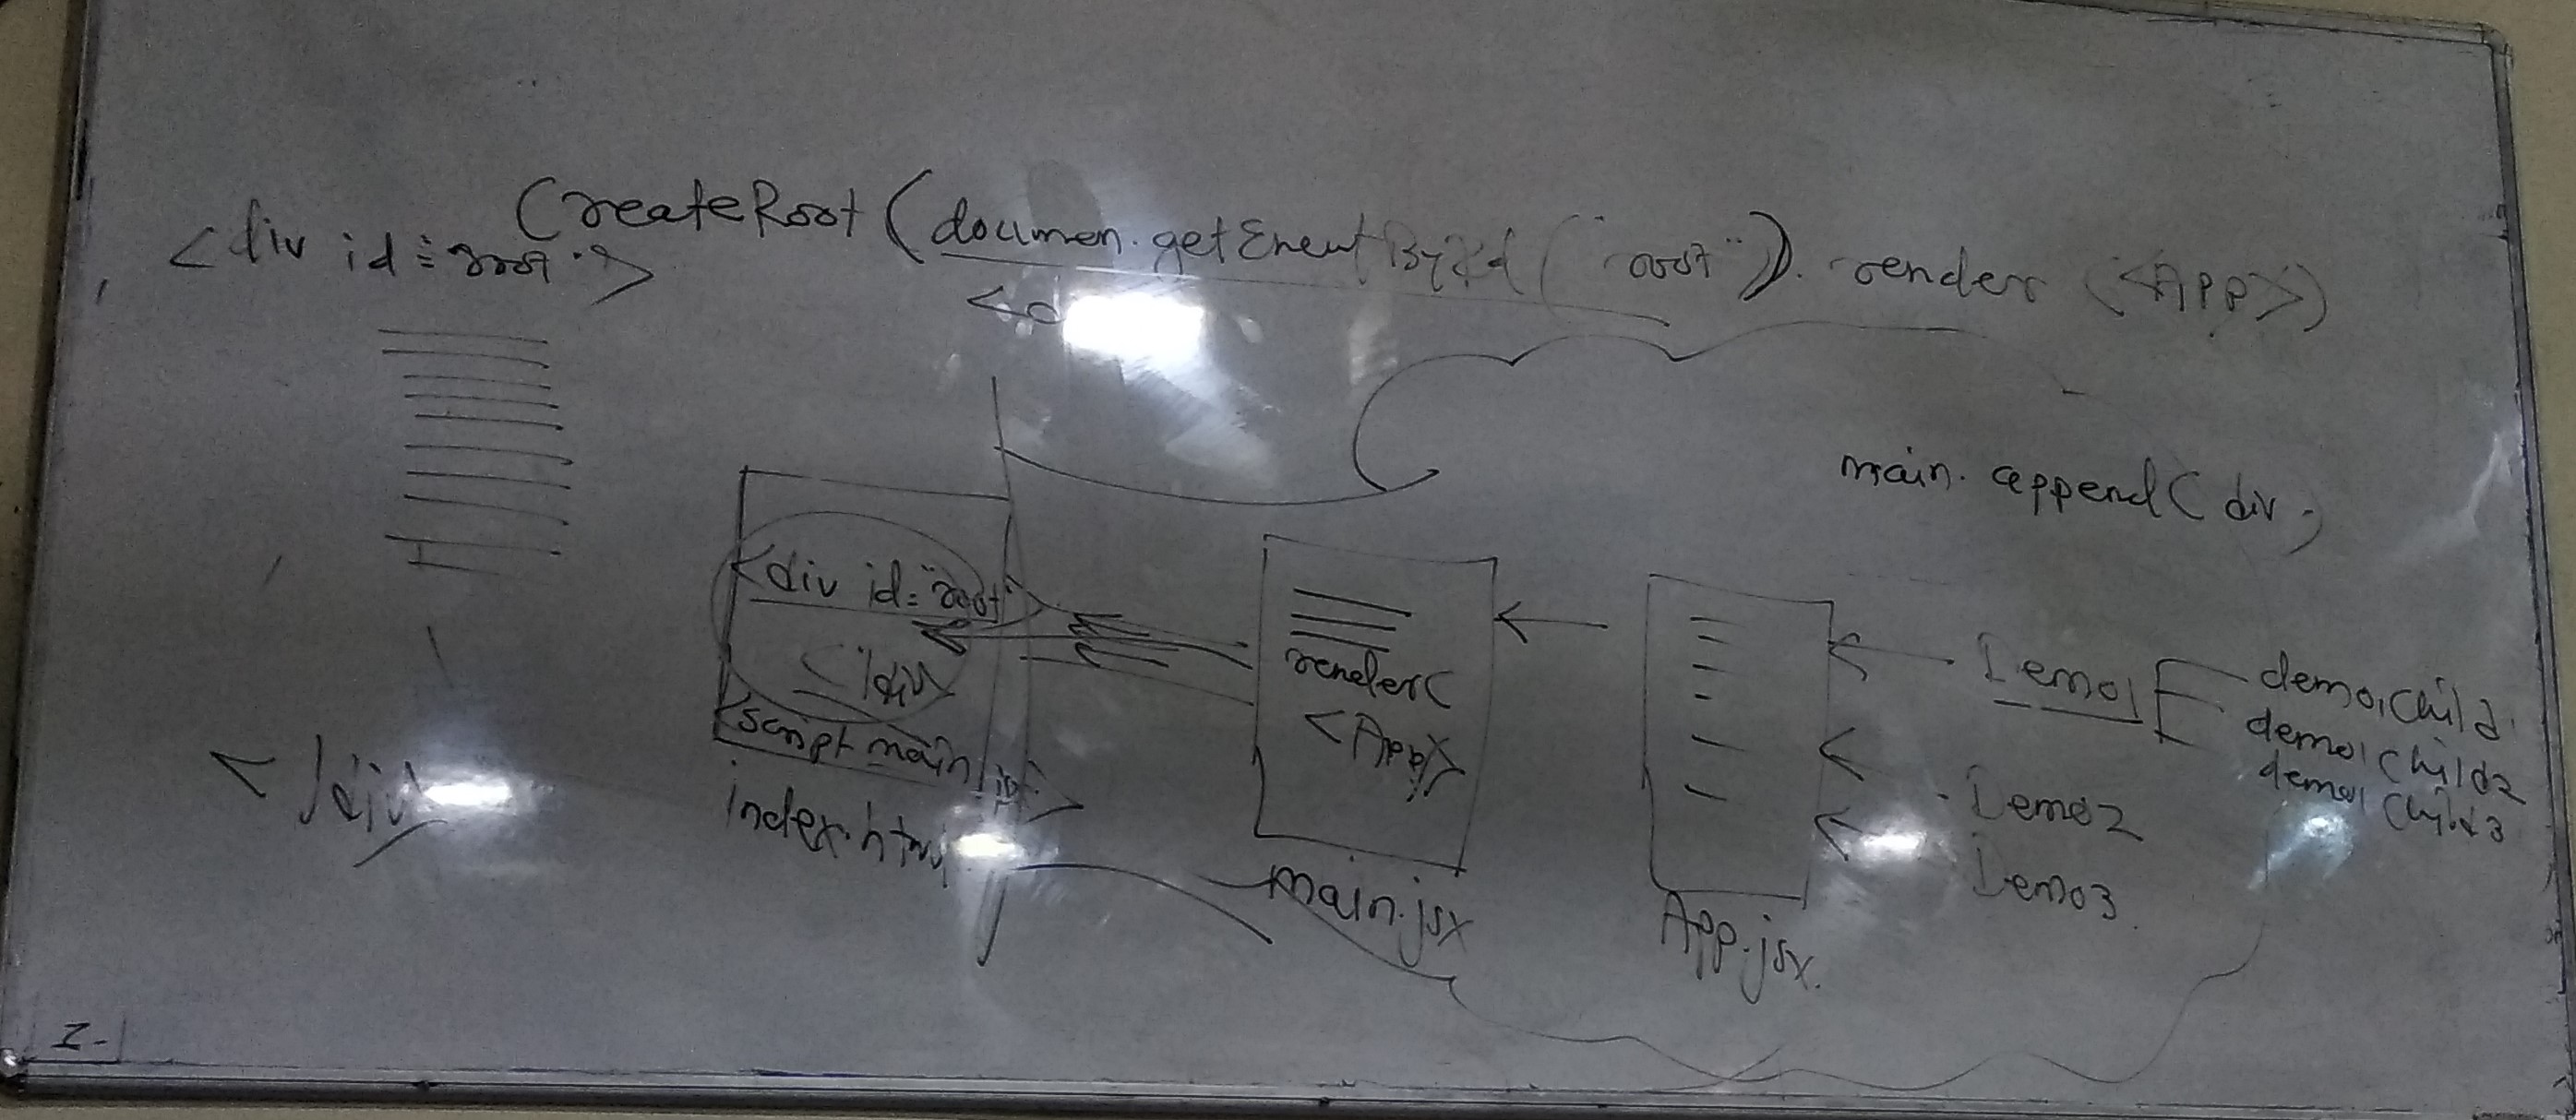 CreateRoot (documen.getEnentById ("root")). render (<APP>)
<div id="root">
<d
main. append( div )
<div id="root"
</div>
<script main
index.html
render(
<App/>
main.jsx
App.jsx.
Demo1
demo1Child
demo1Child2
demo1Child3
Demo2
Demo3.
</div